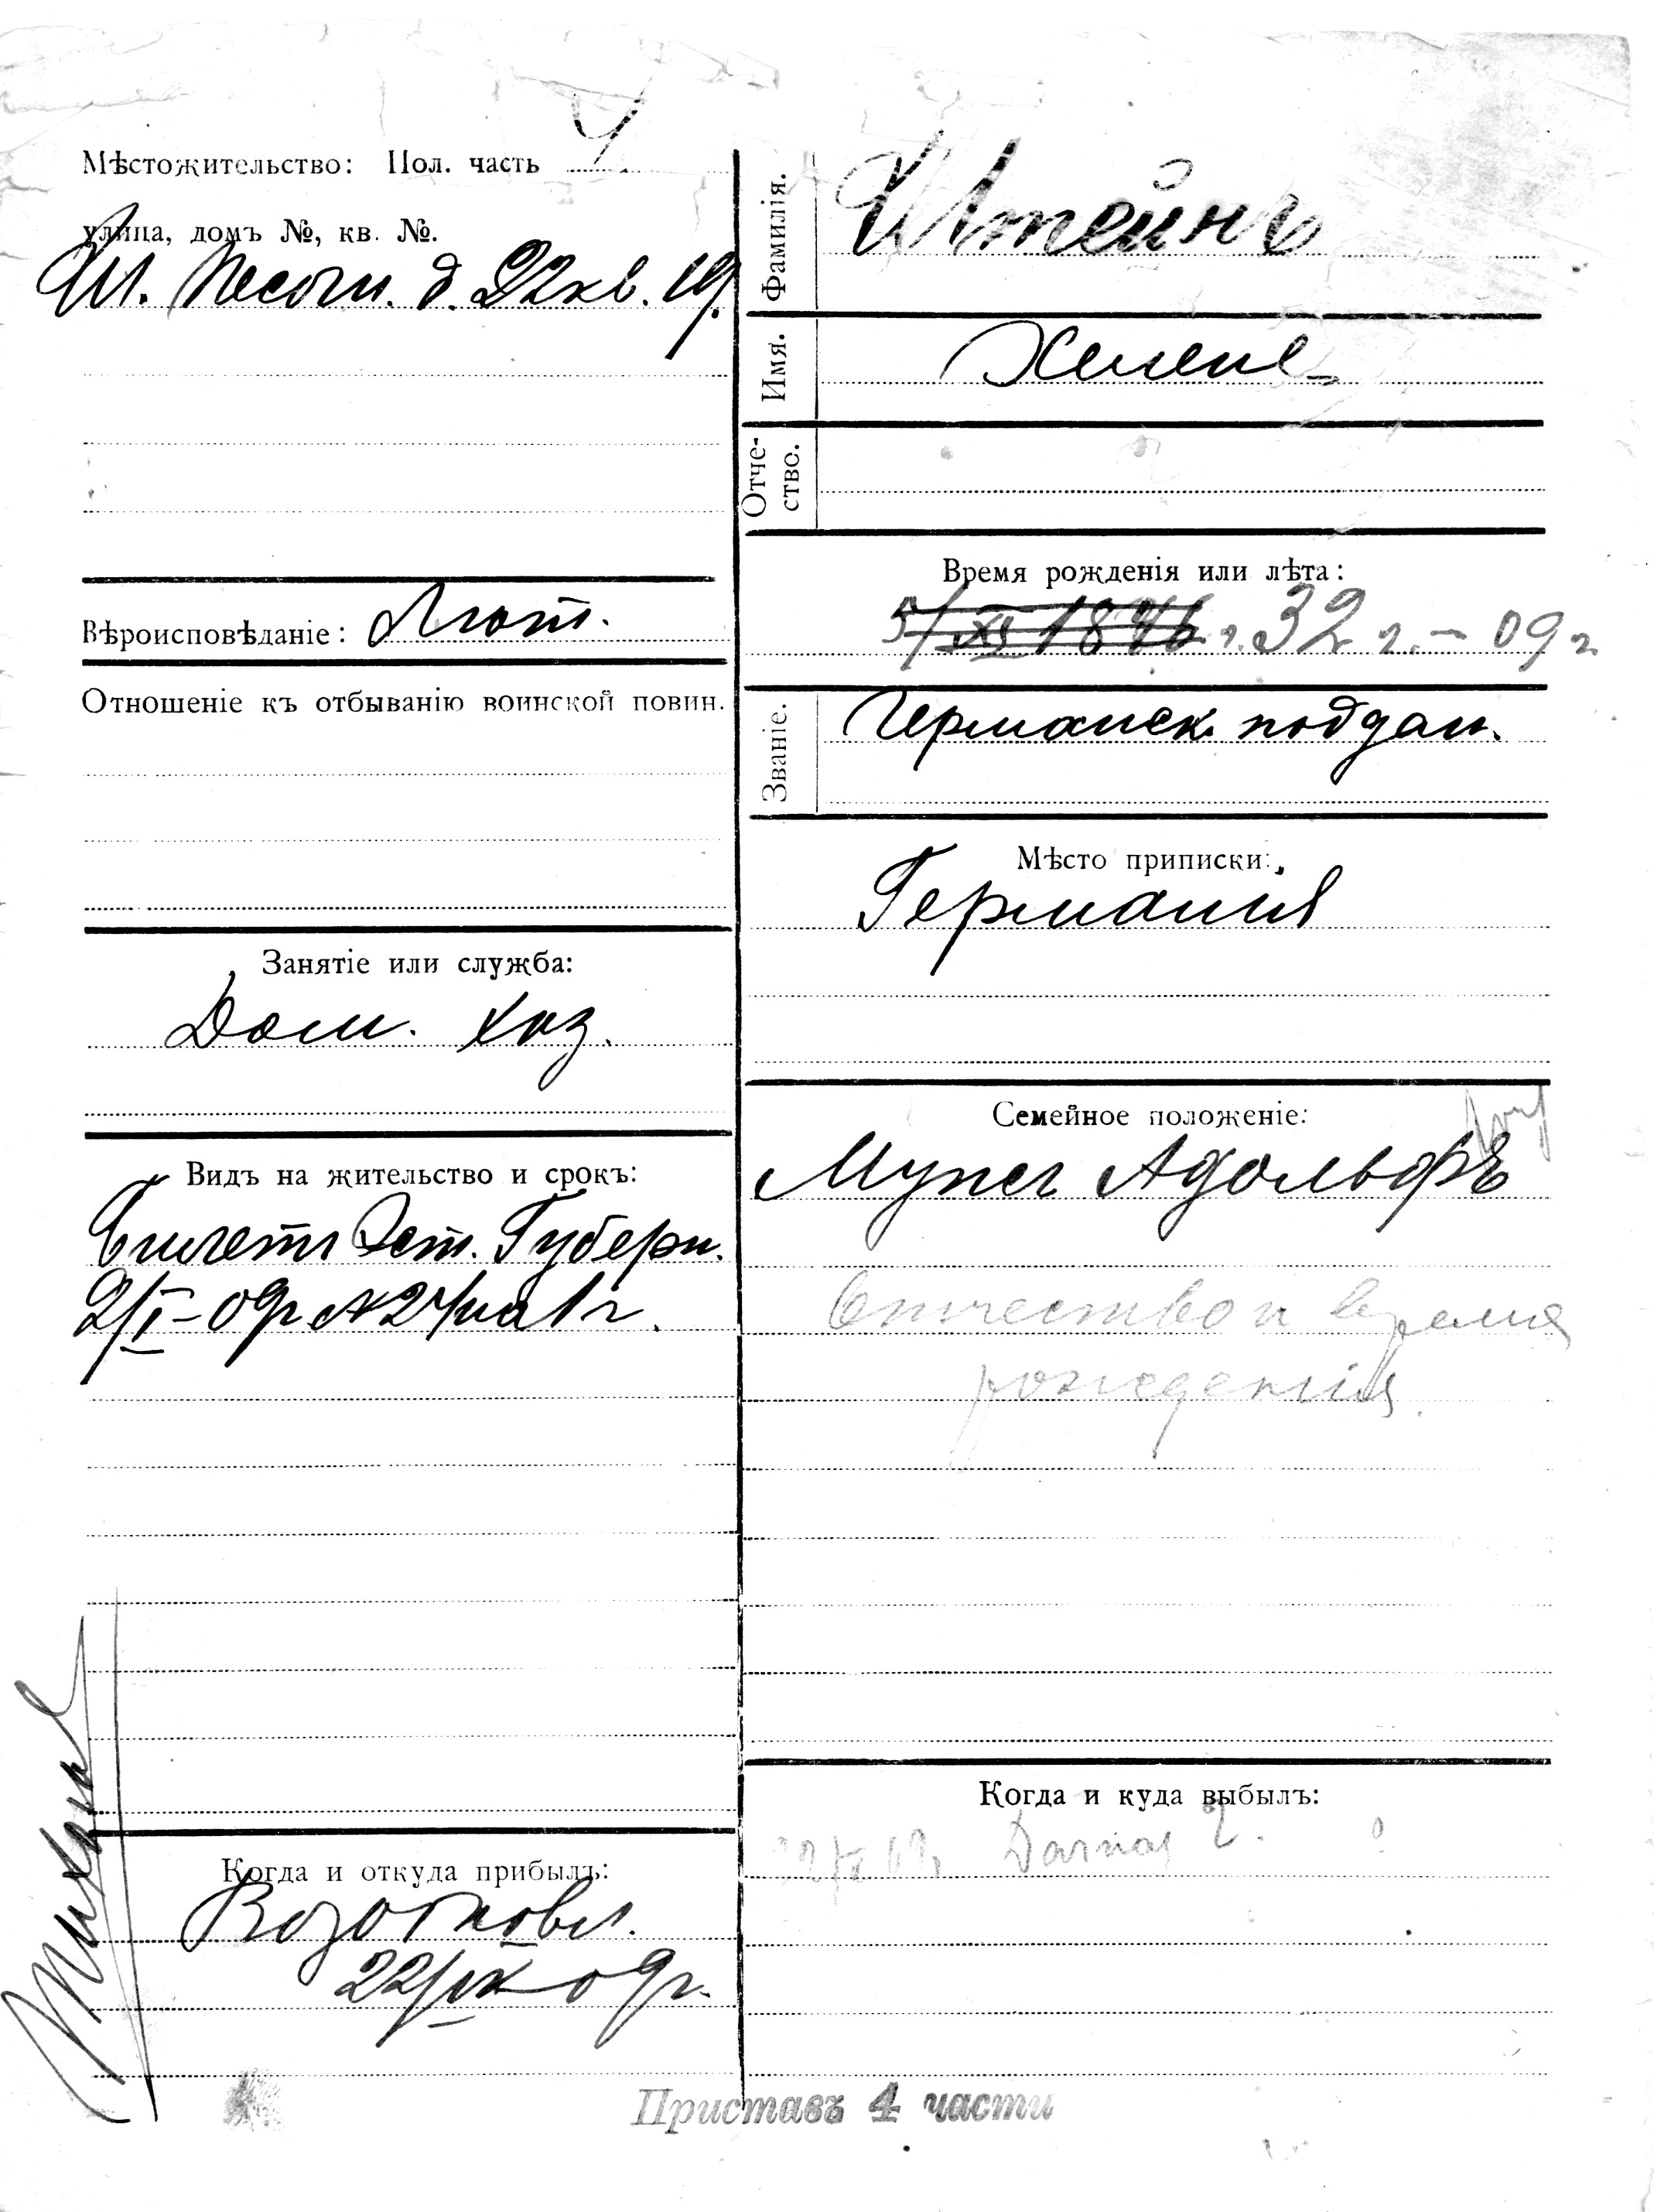 Мѣстожительство: Пол. часть 4
улица, домъ №, кв. №.
Ш. Песочн. д. 22 кв. 19.
Вѣроисповѣданіе: Лют.
Отношеніе къ отбыванію воинской повин.
Занятіе или служба:
Дом. хоз.
Видъ на жительство и срокъ:
Билетъ Эст. Губерн.
2/I-09г № 24 на 1 г.
Когда и откуда прибылъ:
22/IX 09г.
Фамилія. Штейнъ
Имя. Хелене
Отче-
ство.
Время рожденія или лѣта:
5/XI 1876 г. 32 г. - 09 г
Званіе. Германск. поддан.
Мѣсто приписки:
Германія
Семейное положеніе:
Мужъ Адольфъ
Отчество и время
рожденія
Когда и куда выбылъ:
Приставъ 4 части